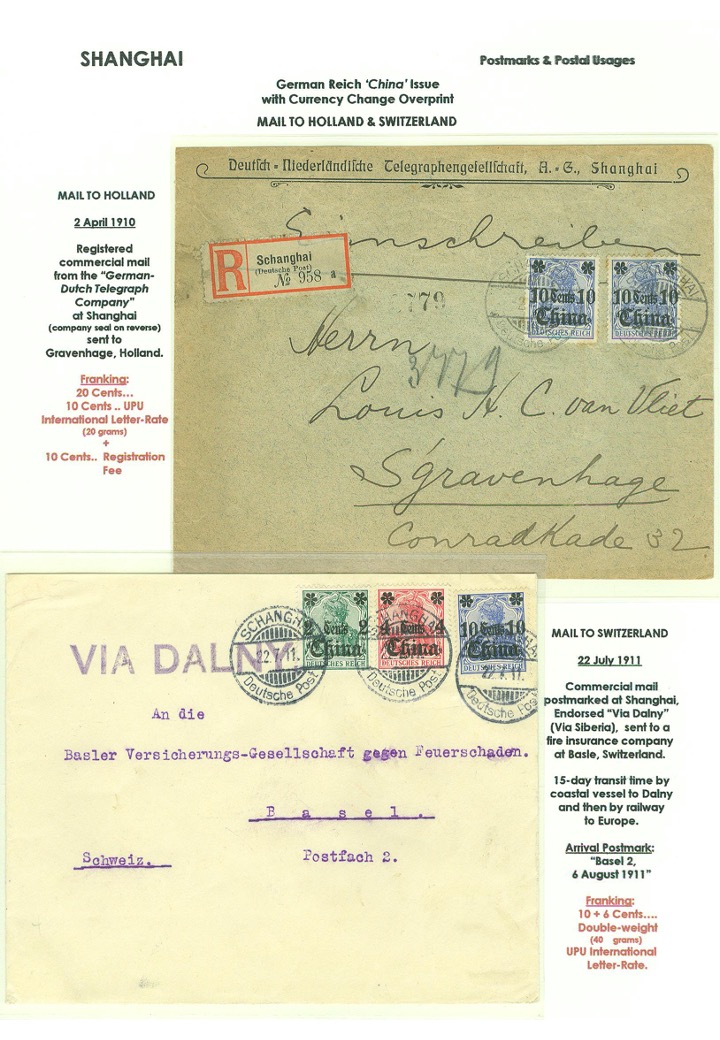 SHANGHAI
Postmarks & Postal Usages
German Reich ‘China’ Issue
with Currency Change Overprint
MAIL TO HOLLAND & SWITZERLAND
MAIL TO HOLLAND
2 April 1910
Registered
commercial mail
from the “German-
Dutch Telegraph
Company”
at Shanghai
(company seal on reverse)
sent to
Gravenhage, Holland.
Franking:
20 Cents...
10 Cents .. UPU
International Letter-Rate
(20 grams)
+
10 Cents.. Registration
Fee
Deutsch-Niederländische Telegraphengesellschaft, A.-G., Shanghai
Einschreiben
R
Schanghai
(Deutsche Post)
№ 958 a
779
3779
10 Cents 10
China
DEUTSCHES REICH
10 Cents 10
China
DEUTSCHES REICH
Deutsche Post
Herrn
Louis H. C. van Vliet
S'gravenhage
Conradkade 32
2 Cents 2
China
DEUTSCHES REICH
4 Cents 4
China
DEUTSCHES REICH
10 Cents 10
China
DEUTSCHES REICH
SCHANGHAI
22.7.11.
Deutsche Post
SCHANGHAI
Deutsche Post
Deutsche Post
VIA DALNY.
An die
Basler Versicherungs-Gesellschaft gegen Feuerschaden.
Basel.
Schweiz.
Postfach 2.
MAIL TO SWITZERLAND
22 July 1911
Commercial mail
postmarked at Shanghai,
Endorsed “Via Dalny”
(Via Siberia), sent to a
fire insurance company
at Basle, Switzerland.
15-day transit time by
coastal vessel to Dalny
and then by railway
to Europe.
Arrival Postmark:
“Basel 2,
6 August 1911”
Franking:
10 + 6 Cents....
Double-weight
(40 grams)
UPU International
Letter-Rate.